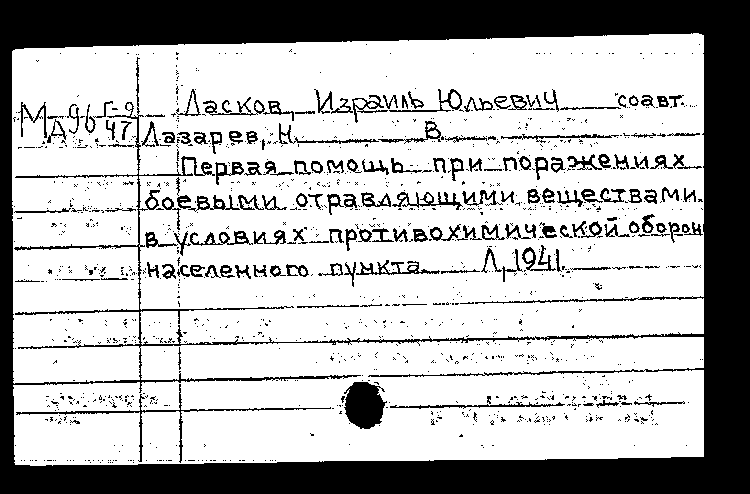 Ласков, Израиль Юльевич соавт.
МА96 Г-9/47 Лазарев, Н. В.
Первая помощь при поражениях
боевыми отравляющими веществами
в условиях противохимической оборон
населенного пункта. Л, 1941.